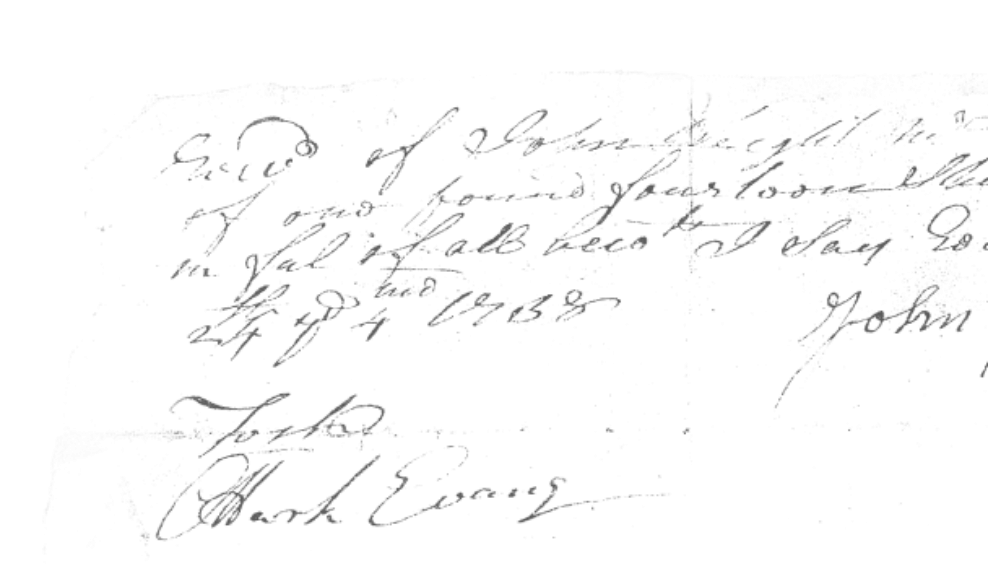 Recd of John Wright
of one pound fourteen Shi
in ful of all acco I Say Re
24th 4 mo 1738 John
Test
Mark Evans